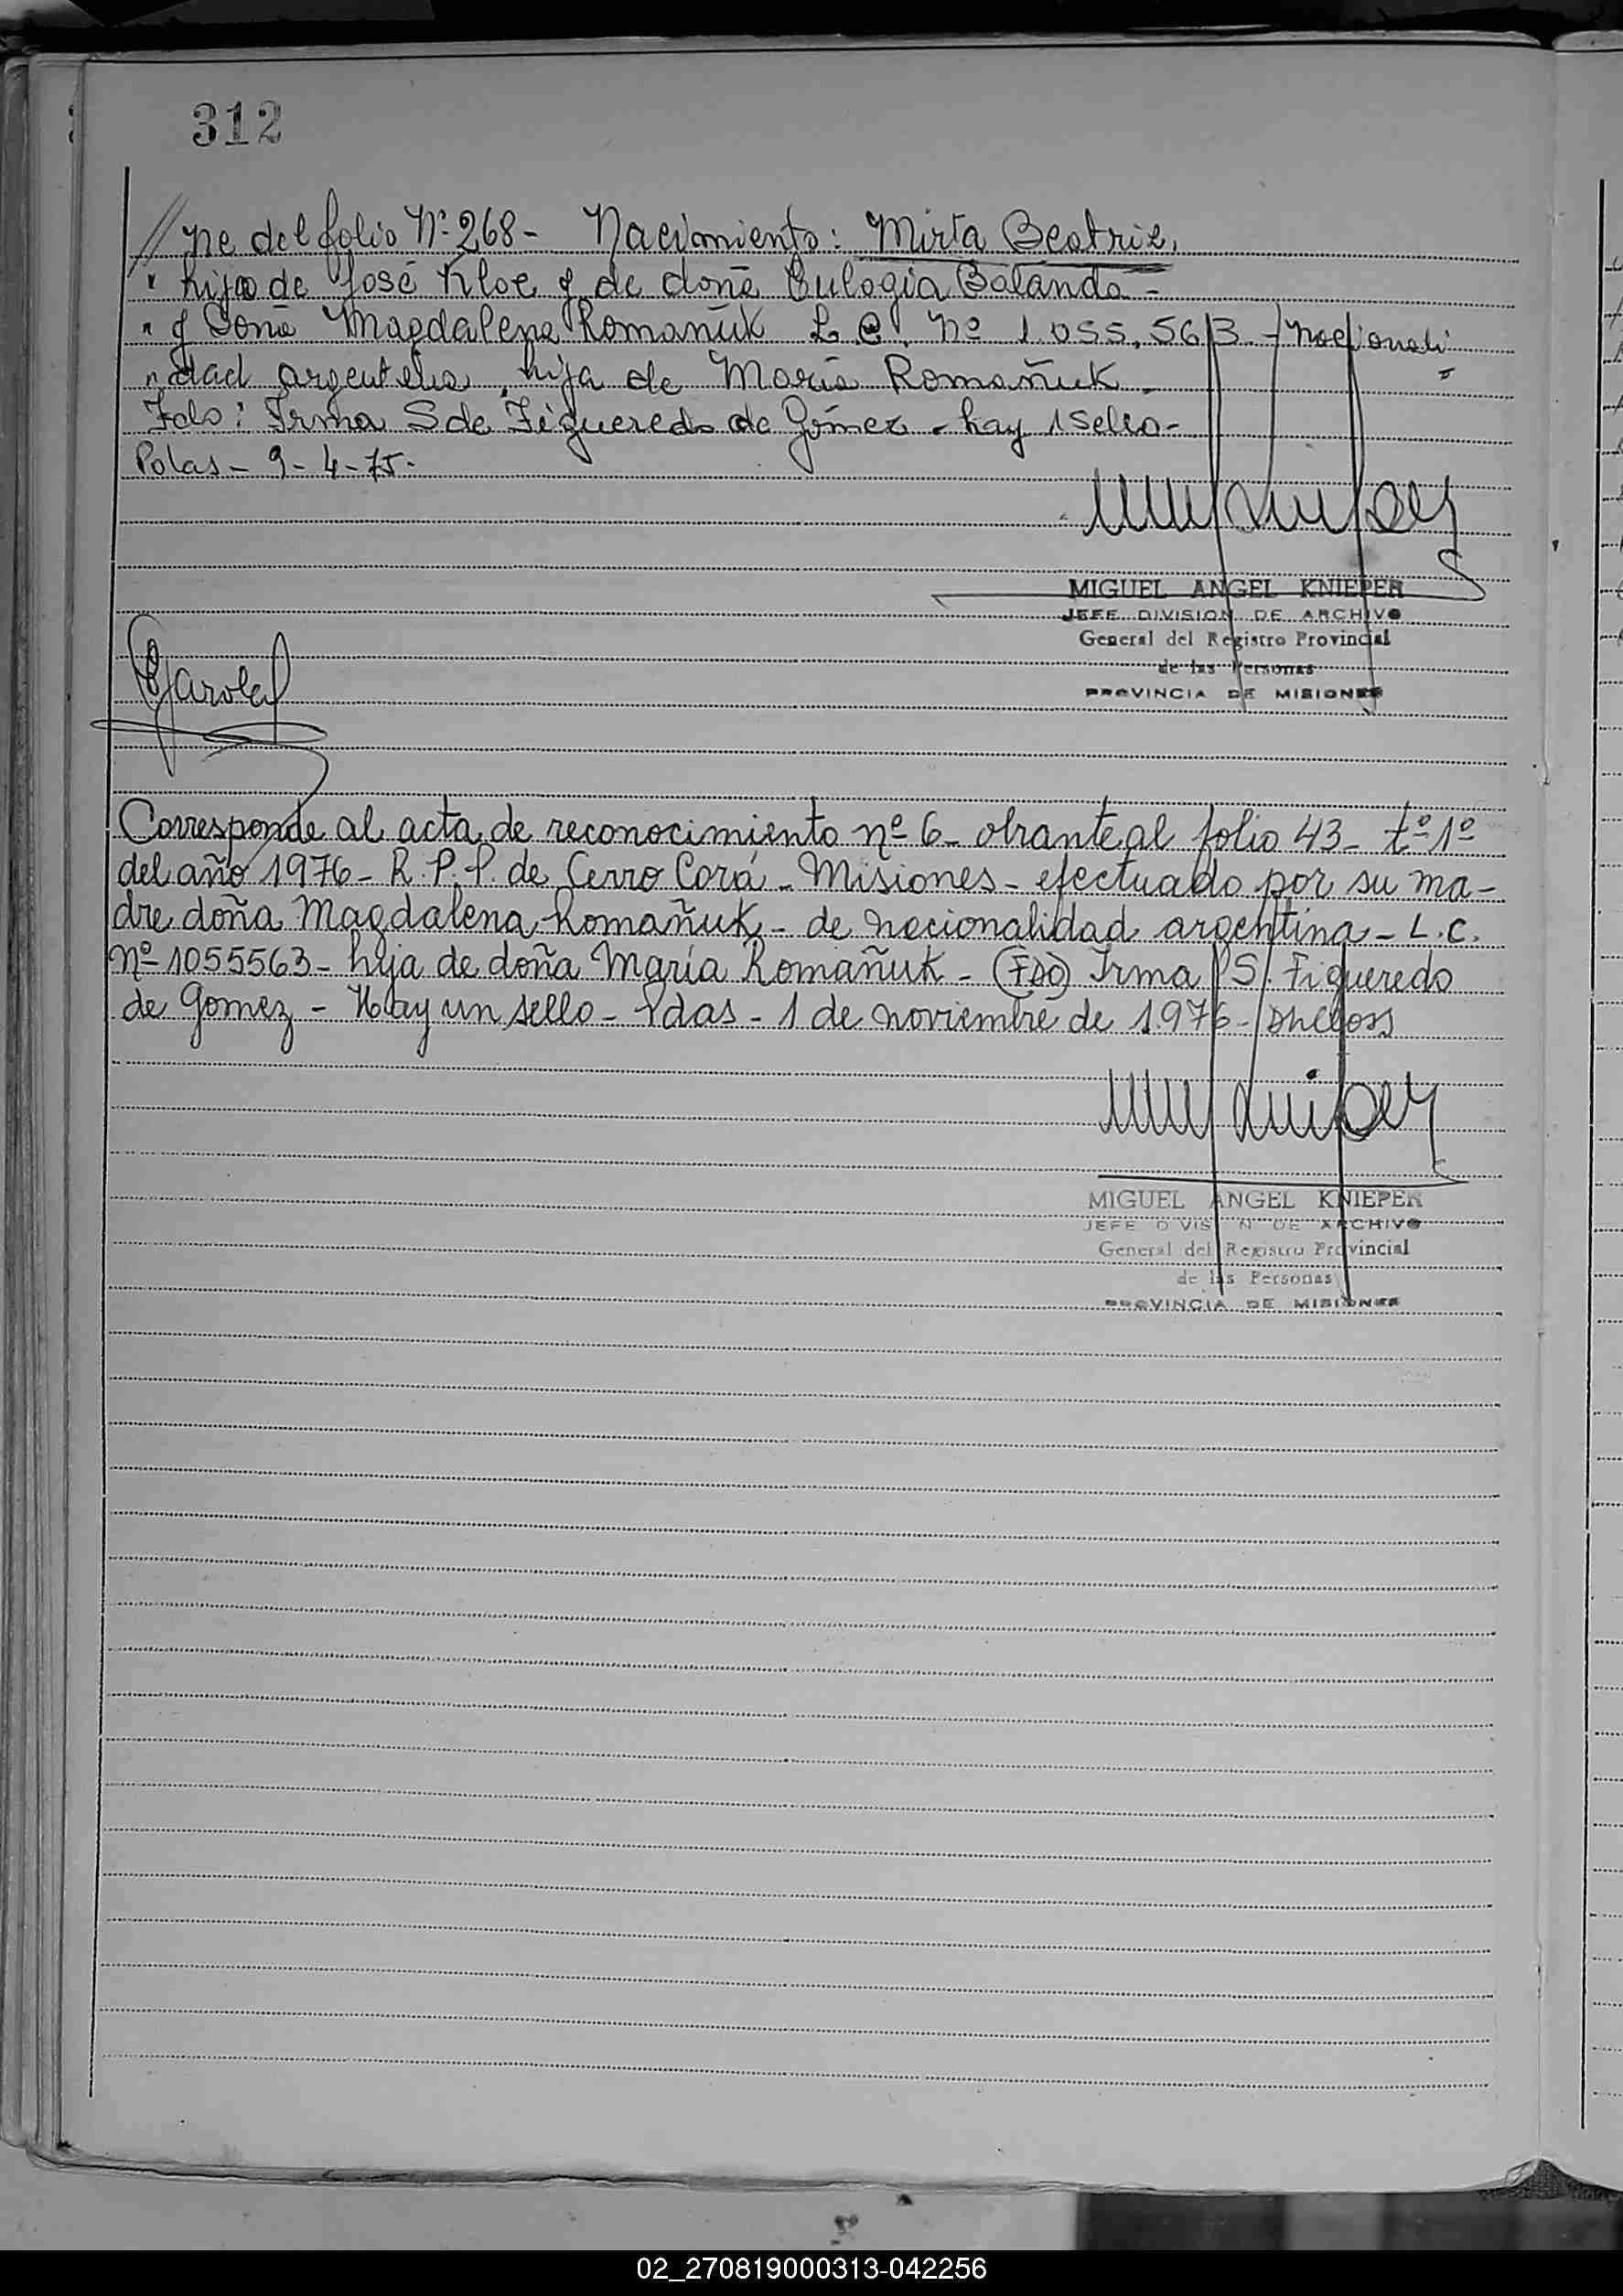 312
//ne del folio Nº 268 - Nacimiento: Mirta Beatriz,
" hija de José Kloc y de doña Eulogia Batanda -
" y Doña Magdalena Romañuk L.C. Nº 1.055.563 - Nacionali
" dad argentina, hija de María Romañuk -
Fdo: Irma S de Figueredo de Gómez - hay 1 sello -
Pdas - 9-4-75.
MIGUEL ANGEL KNIEPER
JEFE DIVISION DE ARCHIVO
General del Registro Provincial
de las Personas
PROVINCIA DE MISIONES
Corresponde al acta de reconocimiento nº 6 - obrante al folio 43 - tº 1º
del año 1976 - R.P.P. de Cerro Corá - Misiones - efectuado por su ma-
dre doña Magdalena Romañuk - de nacionalidad argentina - L.C.
Nº 1055563 - hija de doña María Romañuk - (FDO) Irma S. Figueredo
de Gomez - Hay un sello - Pdas - 1 de noviembre de 1976 -
MIGUEL ANGEL KNIEPER
JEFE DIVISION DE ARCHIVO
General del Registro Provincial
de las Personas
PROVINCIA DE MISIONES
02_270819000313-042256